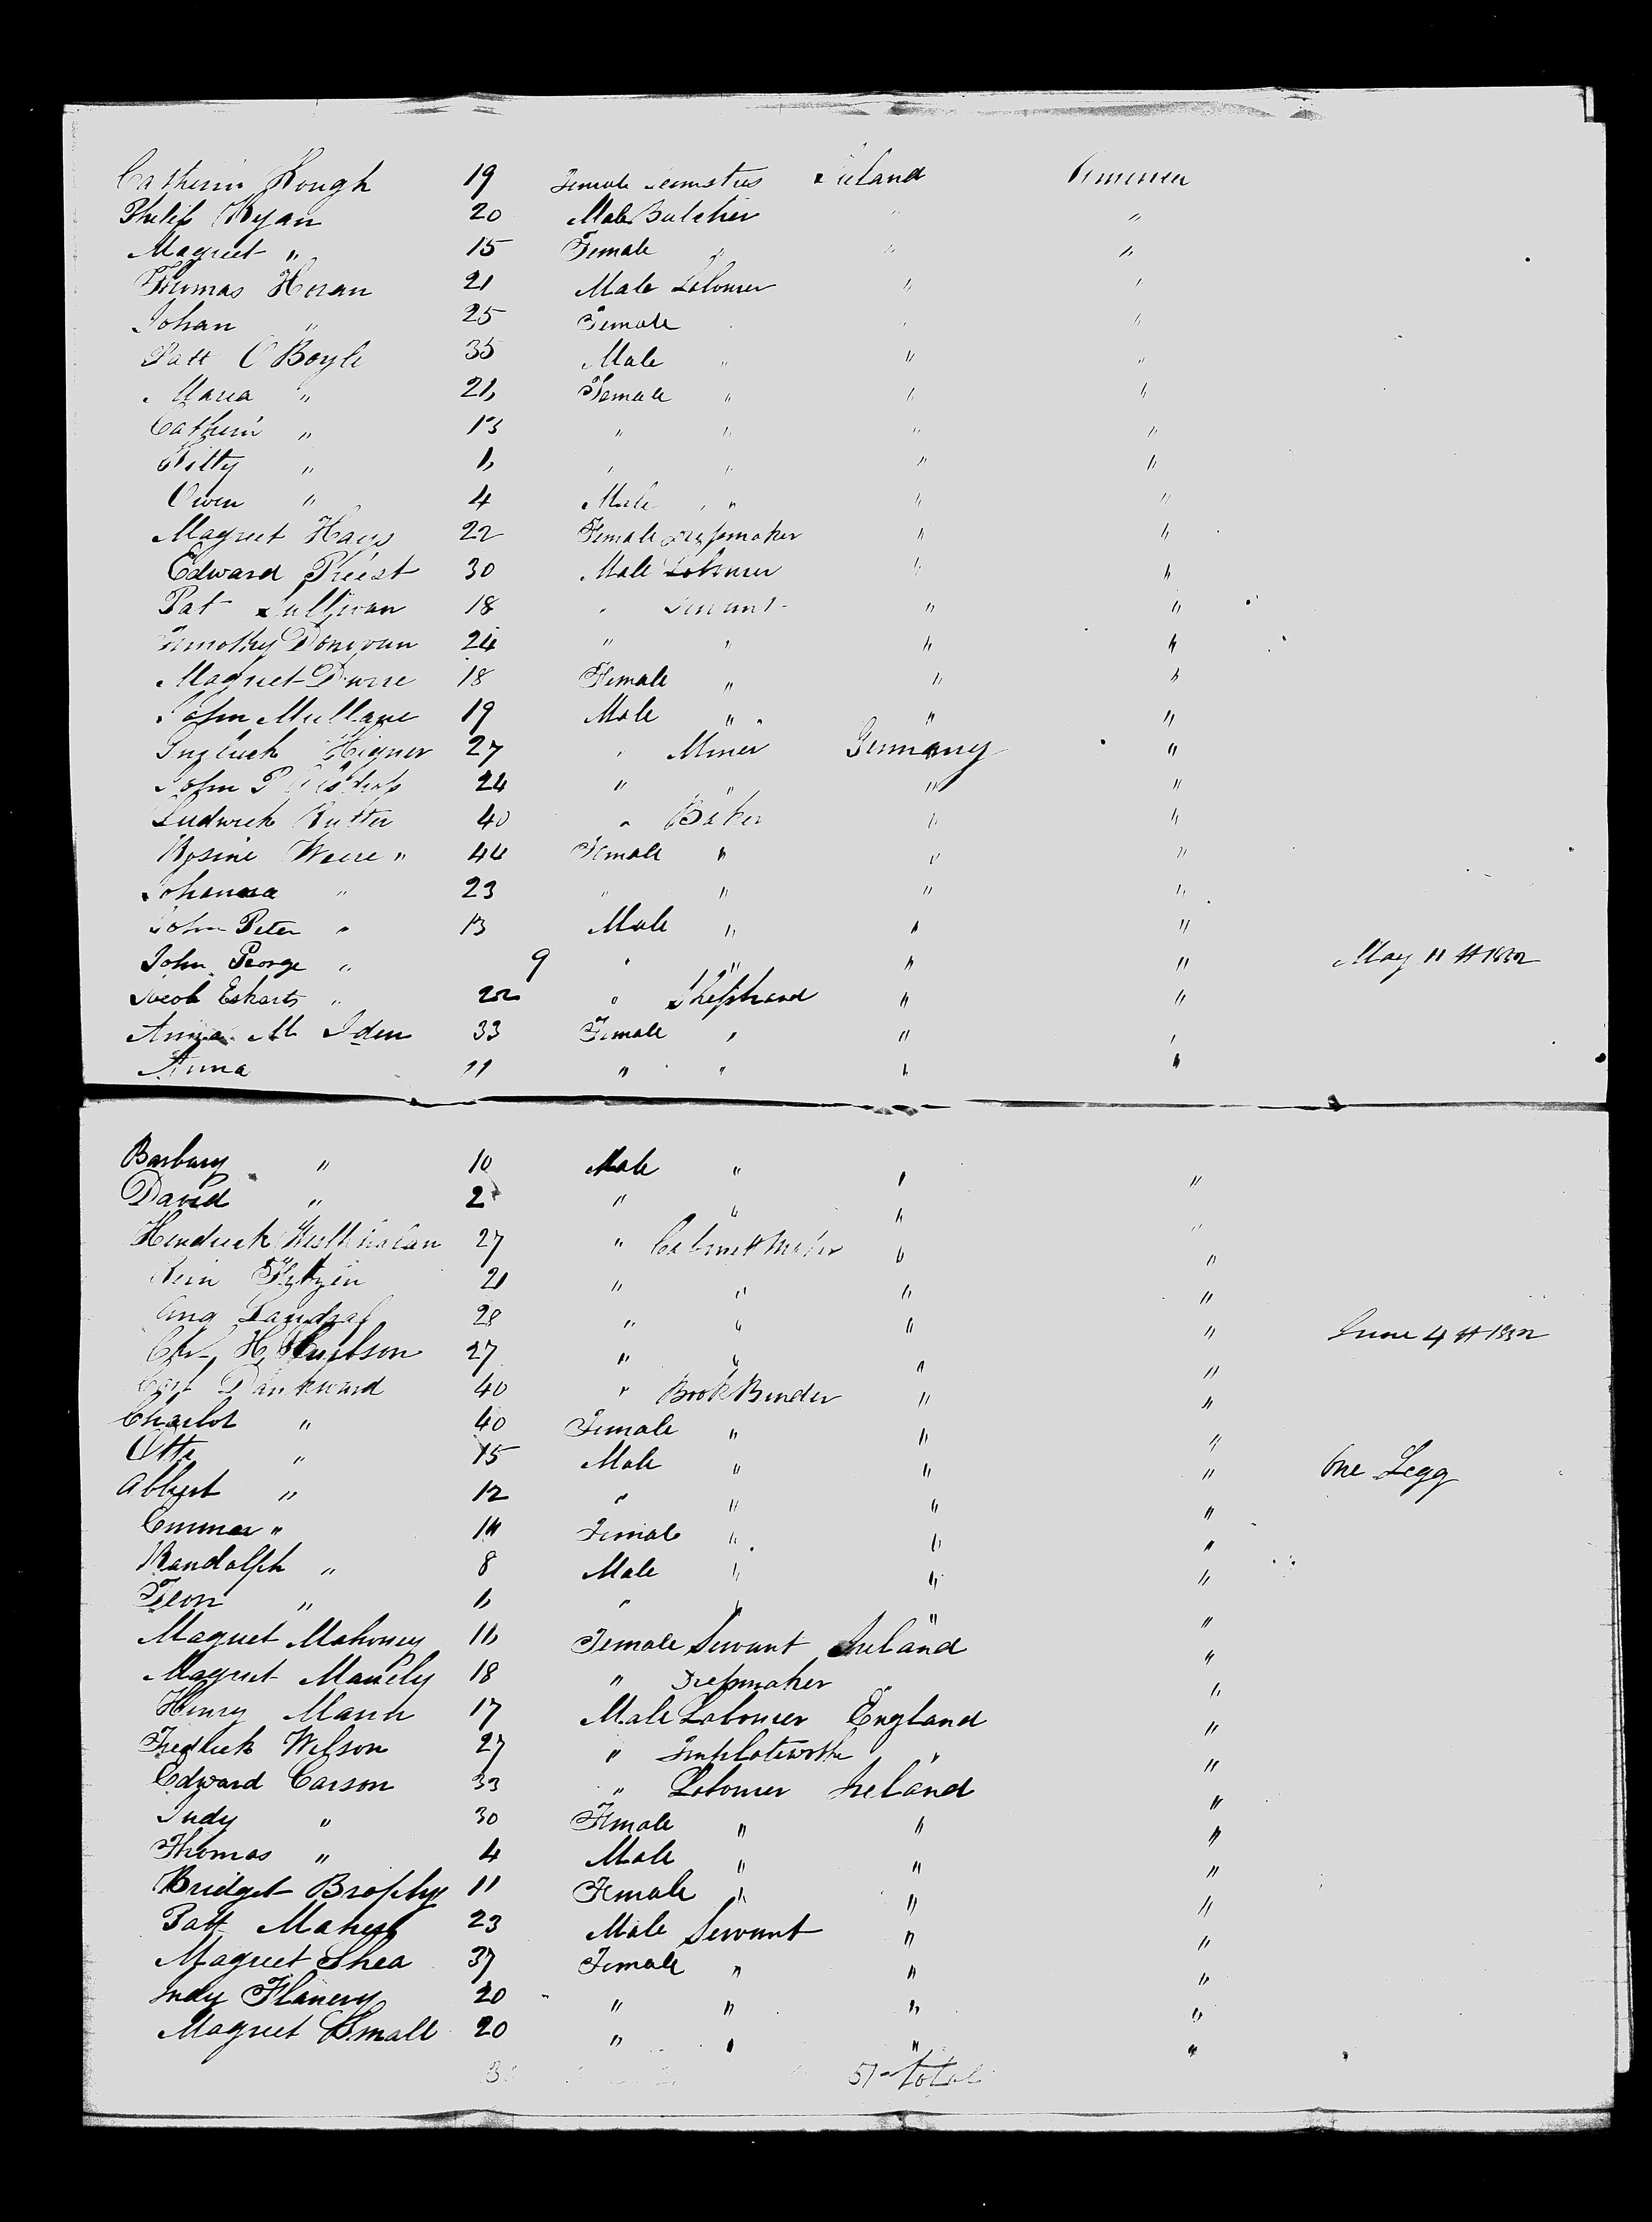 Catherin Hough 19 Female Seamstres Ireland America
Philip Ryan 20 Male Butcher " "
Magreet " 15 Female " " "
Thomas Horan 21 Male Labourer " "
Johan " 25 Female " " "
Patt O Boyle 35 Male " " "
Maria " 26 Female " " "
Catherin " 13 " " " "
Kitty " 6 " " " "
Owen " 4 Male " " "
Magreet Hays 22 Female Dressmaker " "
Edward Priest 30 Male Labourer " "
Pat Sullivan 18 " Servant " "
Timothy Donovan 24 " " " "
Magreet 18 Female " " "
John Mullane 19 Male " " "
Higner 27 " Miner Germany "
John P 24 " " " "
Ludwick Rutter 40 " Baker " "
Rosine " 44 Female " " "
Johanna " 23 " " " "
John Peter " 13 Male " " "
John George " 9 " " " " May 11th 1852
Jacob Eckarts " 22 " Shephard " "
Anna M Iden 33 Female " " "
Anna 11 " " " "
Barbary " 10 Male " " "
David " 2 " " " "
Hendrick 27 " Cabinett Maker " "
21 " " " "
28 " " " " June 4th 1852
H 27 " " " "
Dankward 40 " Book Binder " "
Charlot " 40 Female " " "
Otto " 15 Male " " " One Legg
Albert " 12 " " " "
Emmer " 10 Female " " "
Randolph " 8 Male " " "
" 6 " " " "
Magreet Mahoney 16 Female Servant Ireland "
Magreet 18 " Dressmaker " "
Henry Mann 17 Male Labourer England "
Fredrick Wilson 27 " " "
Edward Carson 33 " Labourer Ireland "
Judy " 30 Female " " "
Thomas " 4 Male " " "
Bridget Brophy 11 Female " " "
Patt Maher 23 Male Servant " "
Magreet Shea 37 Female " " "
Judy Flanery 20 " " " "
Magreet Small 20 " " " "
51 total